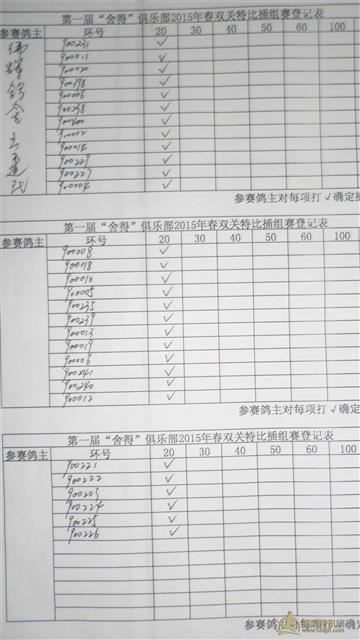 第一届“舍得”俱乐部2015年春双关特比插组赛登记表
参赛鸽主 环号 20 30 40 50 60 80 100
900231 ✓
900011 ✓
900020 ✓
900398 ✓
900005 ✓
900238 ✓
900400 ✓
900002 ✓
900018 ✓
900229 ✓
900227 ✓
900004 ✓
参赛鸽主对每项打√确定插
第一届“舍得”俱乐部2015年春双关特比插组赛登记表
参赛鸽主 环号 20 30 40 50 60 80 100
900008 ✓
900018 ✓
900016 ✓
900005 ✓
900235 ✓
900239 ✓
900013 ✓
900019 ✓
900006 ✓
900241 ✓
900240 ✓
900012 ✓
参赛鸽主对每项打√确定
第一届“舍得”俱乐部2015年春双关特比插组赛登记表
参赛鸽主 环号 20 30 40 50 60 80 100
900221 ✓
900222 ✓
900223 ✓
900224 ✓
900225 ✓
900226 ✓
参赛鸽主对每项打√确